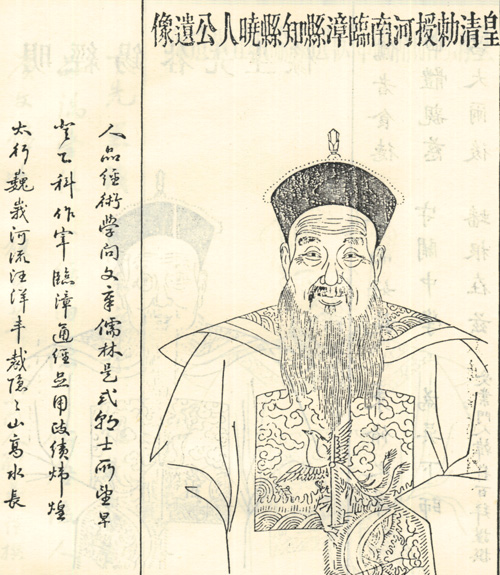 皇清勅授河南臨漳縣知縣曉人公遺像
人品經術學問文章儒林是式多士所望早
登乙科作宰臨漳通經足用政績煒煌
太行巍峩河流汪洋丰裁隱々山高水長